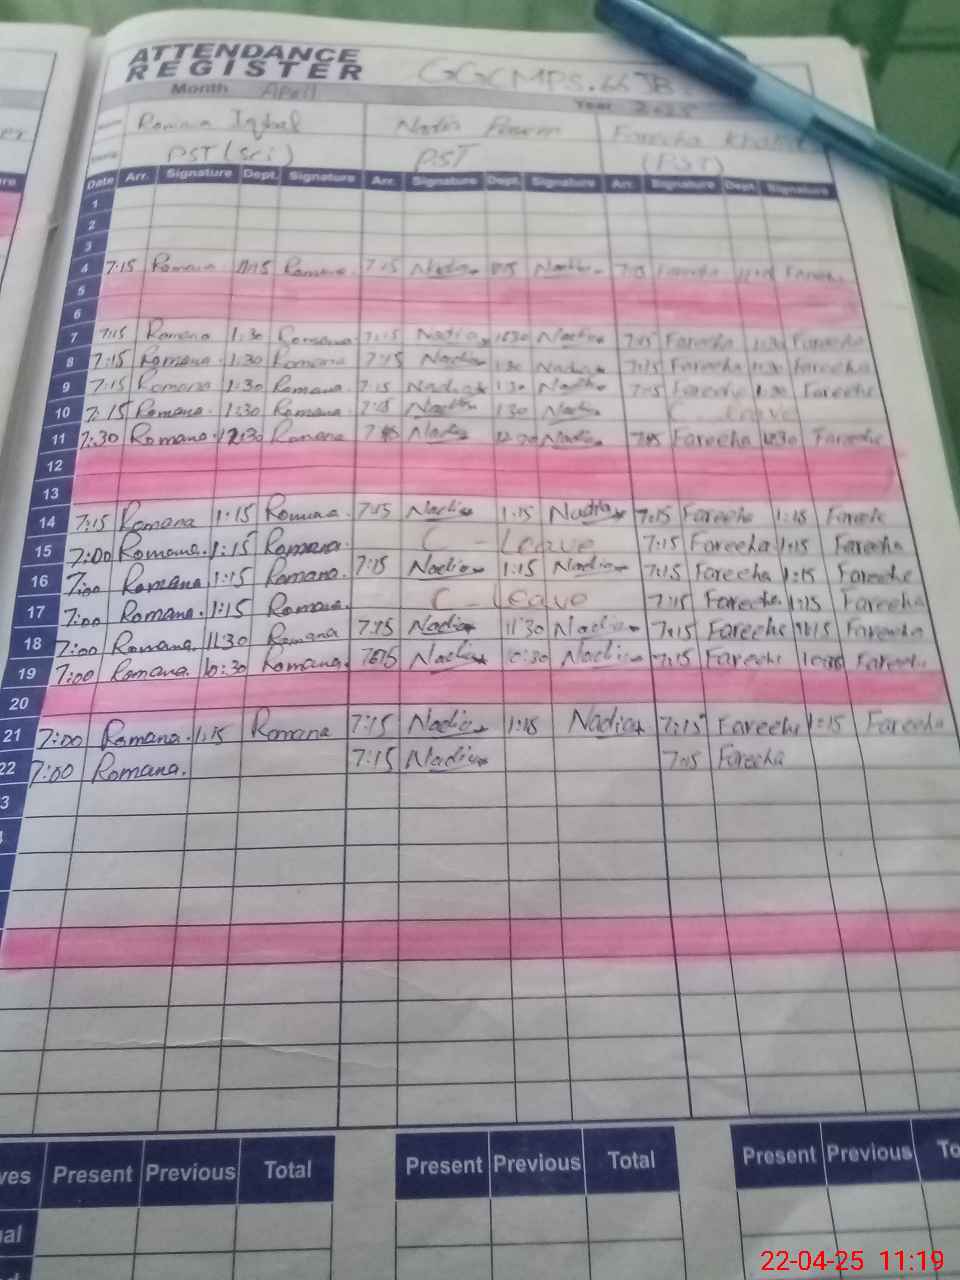 ATTENDANCE
REGISTER
Month April
Year 2025
Romana Iqbal Nadia Fareeha
PST (Sci) PST (PST)
Date Arr. Signature Dept. Signature Arr. Signature Dept. Signature Arr. Signature Dept. Signature
1
2
3
4 7:15 Romana Romana 7:15 Nadia Nadia Fareeha
5
6
7 7:15 Romana 1:30 Romana 7:15 Nadia Nadia 7:15 Fareeha 1:30 Fareeha
8 7:15 Romana 1:30 Romana 7:15 Nadia 1:30 Nadia 7:15 Fareeha 1:30 Fareeha
9 7:15 Romana 1:30 Romana 7:15 Nadia 1:30 Nadia 7:15 Fareeha 1:30 Fareeha
10 7:15 Romana 1:30 Romana 7:15 Nadia 1:30 Nadia C Leave
11 7:30 Romana 12:30 Romana Nadia Nadia Fareeha 12:30 Fareeha
12
13
14 7:15 Romana 1:15 Romana 7:15 Nadia 1:15 Nadia 7:15 Fareeha 1:15 Fareeha
15 7:00 Romana 1:15 Romana C - Leave 7:15 Fareeha 1:15 Fareeha
16 7:00 Romana 1:15 Romana 7:15 Nadia 1:15 Nadia 7:15 Fareeha 1:15 Fareeha
17 7:00 Romana 1:15 Romana C - Leave 7:15 Fareeha 1:15 Fareeha
18 7:00 Romana 11:30 Romana 7:15 Nadia 11:30 Nadia 7:15 Fareeha Fareeha
19 7:00 Romana 10:30 Romana Nadia 10:30 Nadia 7:15 Fareeha Fareeha
20
21 7:00 Romana 1:15 Romana 7:15 Nadia 1:15 Nadia 7:15 Fareeha 1:15 Fareeha
22 7:00 Romana 7:15 Nadia 7:15 Fareeha
Present Previous Total Present Previous Total Present Previous
22-04-25 11:19